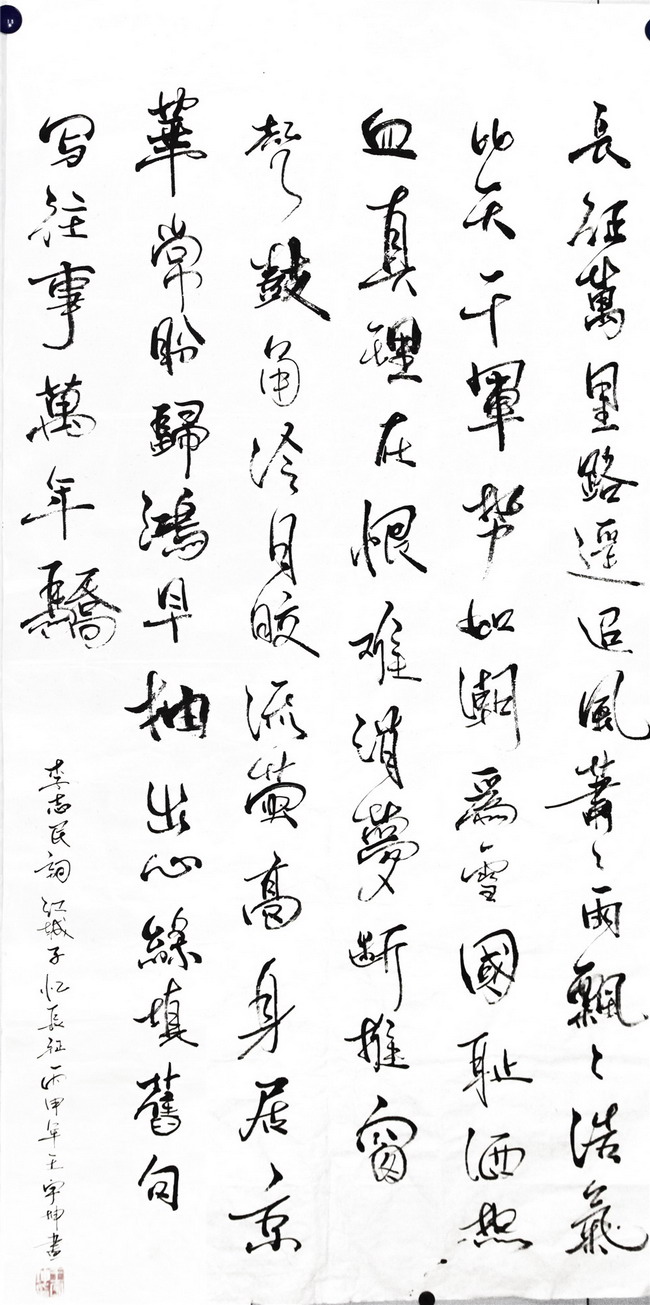 長征萬里路遥迢風蕭〻雨飄〻浩氣
冲天千軍势如潮爲雪國耻洒热
血真理在恨难消夢断推窗
鼓角冷月皎流萤高身居京
華常盼歸鴻早抽出心絲填舊句
写往事萬年驕
李志民詞江城子忆長征丙申年王宇坤書